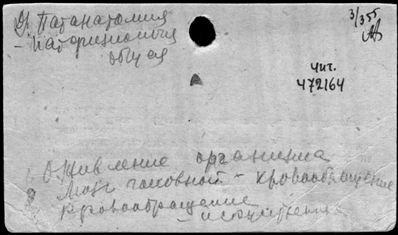 Патанатомия
общая
3/355
чит.
472164
Оживление организма
Мозг головной - кровообращение
Кровообращение